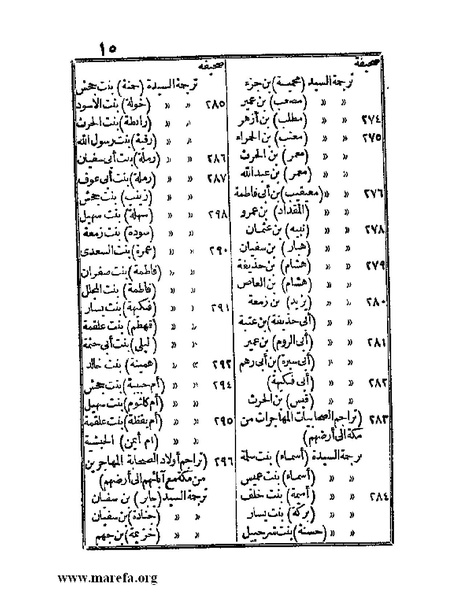 ١٥
صحيفة
ترجمة السيد (محمية) بن جزء
» » (مصعب) بن عمير
٢٧٤ » » (مطلب) بن أزهر
٢٧٥ » » (معتب) بن الحمراء
» » (معمر) بن الحرث
» » (معمر) بن عبدالله
٢٧٦ » » (معيقيب) بن أبى فاطمة
» » (المقداد) بن عمرو
٢٧٨ » » (نبيه) بن عثمان
» » (هبار) بن سفيان
٢٧٩ » » (هشام) بن حذيفة
» » (هشام) بن العاص
٢٨٠ » » (يزيد) بن زمعة
» » (أبى حذيفة) بن عتبة
٢٨١ » » (أبى الروم) بن عمير
» » (أبى سبرة) بن أبى رهم
٢٨٢ » » (أبى فكيهة)
» » (قيس) بن الحرث
٢٨٣ (تراجم الصحابيات المهاجرات من
مكة الى أرضهم)
ترجمة السيدة (أسماء) بنت سلمة
» » (أسماء) بنت عميس
٢٨٤ » » (أمينة) بنت خلف
» » (بركة) بنت يسار
» » (حسنة) بنت شرحبيل
صحيفه
ترجمة السيدة (حمنة) بنت جحش
٢٨٥ » » (خولة) بنت الأسود
» » (رابطة) بنت الحرث
» » (رقية) بنت رسول الله
٢٨٦ » » (رملة) بنت أبى سفيان
٢٨٧ » » (رملة) بنت أبى عوف
» » (زينب) بنت جحش
٢٩٨ » » (سهلة) بنت سهيل
» » (سودة) بنت زمعة
٢٩٠ » » (عمرة) بنت السعدى
» » (فاطمة) بنت صفوان
» » (فاطمة) بنت المجلل
٢٩١ » » (فكيهة) بنت يسار
» » (قهطم) بنت علقمة
» » (ليلى) بنت أبى حثمة
٢٩٣ » » (همينة) بنت خالد
٢٩٤ » » (أم حبيبة) بنت جحش
» » (أم كلثوم) بنت سهيل
٢٩٥ » » (أم يقظة) بنت علقمة
» » (أم أيمن) الحبشية
٢٩٦ (تراجم أولاد الصحابة المهاجرين
من مكة مع آبائهم الى أرضهم)
ترجمة السيد (جابر) بن سفيان
» » (جنادة) بن سفيان
» » (خزيمة) بن جهم
www.marefa.org